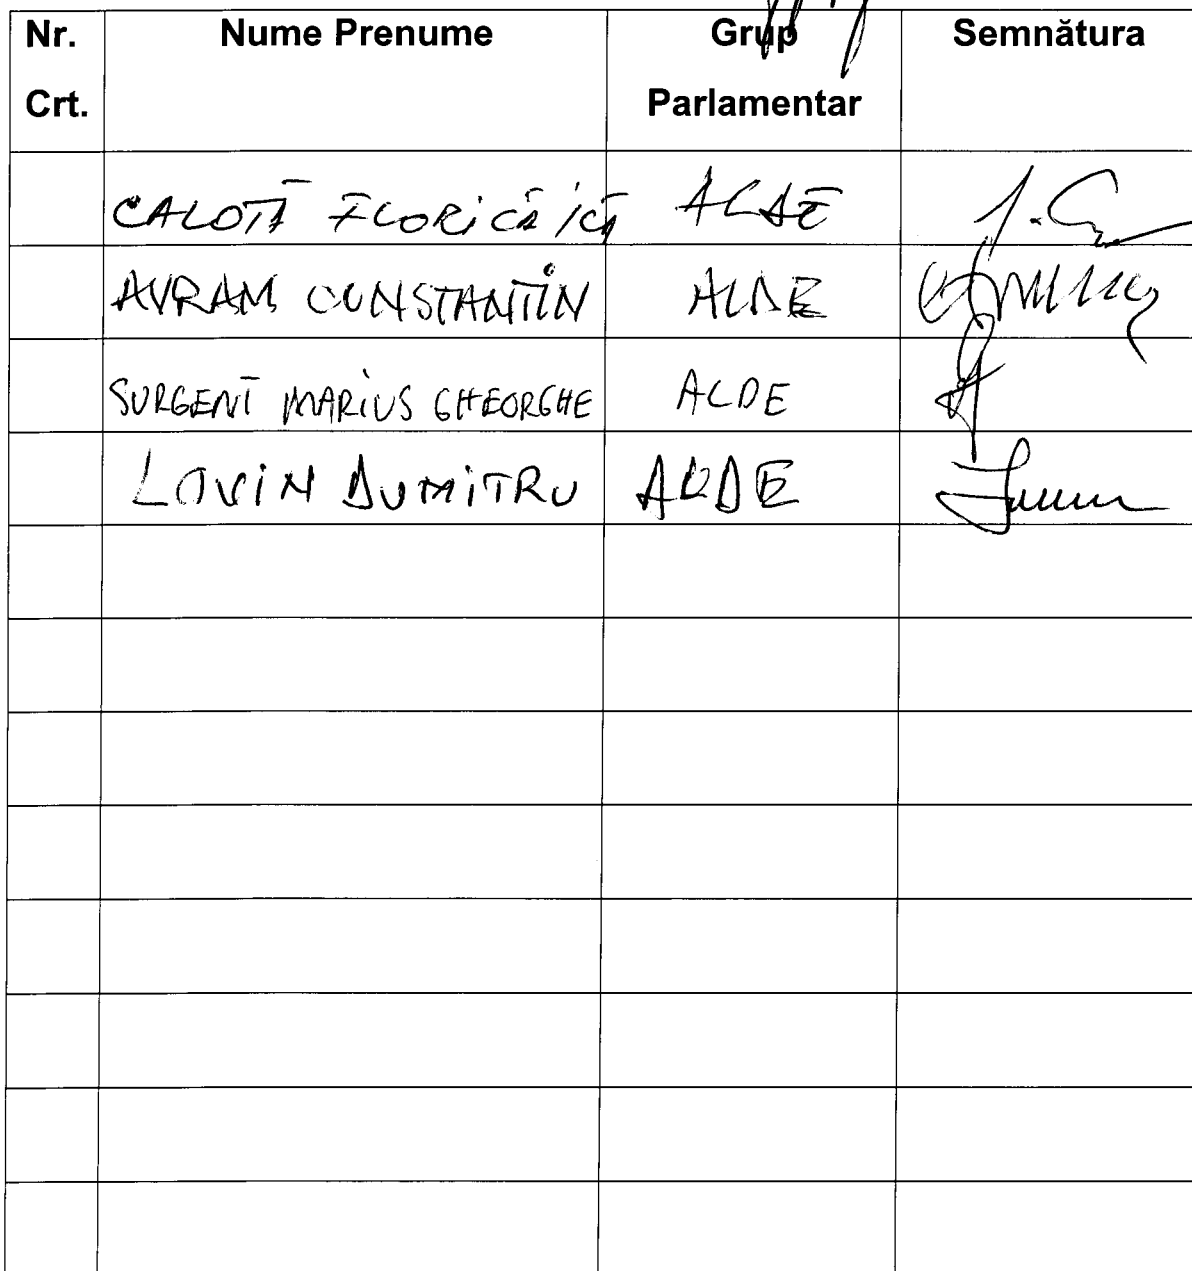 Nr. Crt. Nume Prenume Grup Parlamentar Semnătura
CALOTĂ FLORICĂ ICĂ ALDE
AVRAM CONSTANTIN ALDE
SURGENT MARIUS GHEORGHE ALDE
LOVIN DUMITRU ALDE